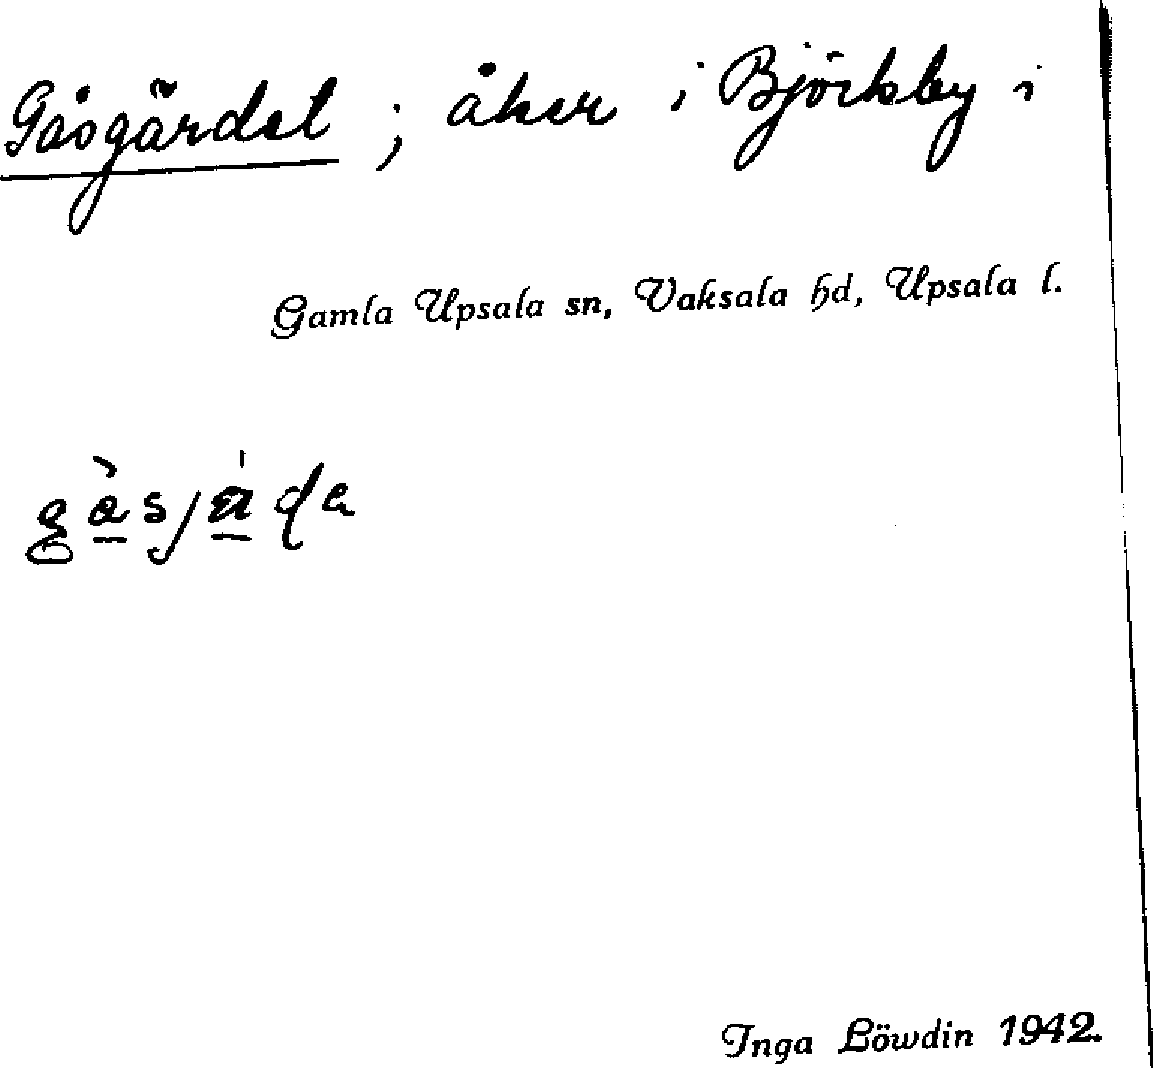 Gåsgärdet ; åker i Björkby i
Gamla Upsala sn, Vaksala hd, Upsala l.
Inga Löwdin 1942.